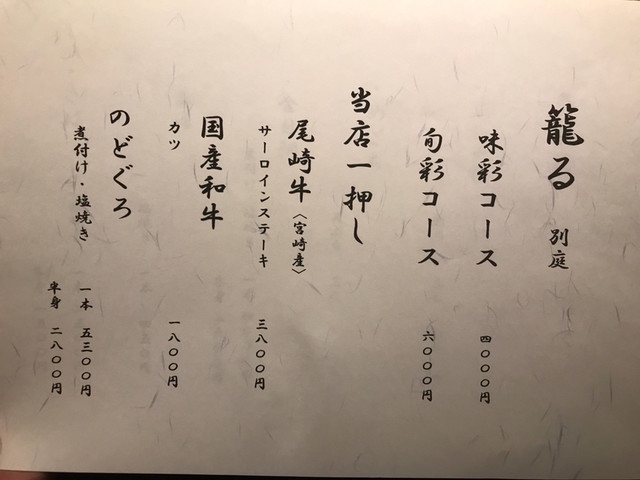 籠る 別庭
味彩コース 四〇〇〇円
旬彩コース 六〇〇〇円
当店一押し
尾崎牛〈宮崎産〉
サーロインステーキ 三八〇〇円
国産和牛
カツ 一八〇〇円
のどぐろ
煮付け・塩焼き 一本 五三〇〇円
半身 二八〇〇円